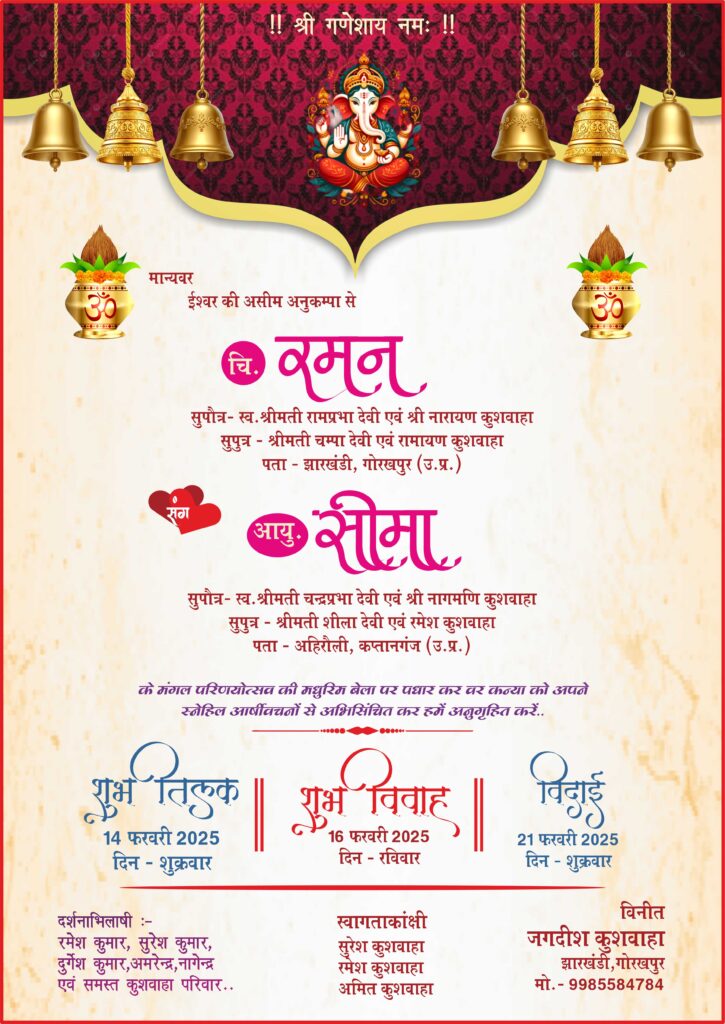 !! श्री गणेशाय नमः !!
मान्यवर
ईश्वर की असीम अनुकम्पा से
चि. रमन
सुपौत्र- स्व.श्रीमती रामप्रभा देवी एवं श्री नारायण कुशवाहा
सुपुत्र - श्रीमती चम्पा देवी एवं रामायण कुशवाहा
पता - झारखंडी, गोरखपुर (उ.प्र.)
संग
आयु. सीमा
सुपौत्र- स्व.श्रीमती चन्द्रप्रभा देवी एवं श्री नागमणि कुशवाहा
सुपुत्र - श्रीमती शीला देवी एवं रमेश कुशवाहा
पता - अहिरौली, कप्तानगंज (उ.प्र.)
के मंगल परिणयोत्सव की मधुरिम बेला पर पधार कर वर कन्या को अपने
स्नेहिल आर्षीवचनों से अभिसिंचित कर हमें अनुगृहित करें..
शुभ तिलक
14 फरवरी 2025
दिन - शुक्रवार
शुभ विवाह
16 फरवरी 2025
दिन - रविवार
विदाई
21 फरवरी 2025
दिन - शुक्रवार
दर्शनाभिलाषी :-
रमेश कुमार, सुरेश कुमार,
दुर्गेश कुमार,अमरेन्द्र,नागेन्द्र
एवं समस्त कुशवाहा परिवार..
स्वागताकांक्षी
सुरेश कुशवाहा
रमेश कुशवाहा
अमित कुशवाहा
विनीत
जगदीश कुशवाहा
झारखंडी,गोरखपुर
मो.- 9985584784
ॐ
ॐ